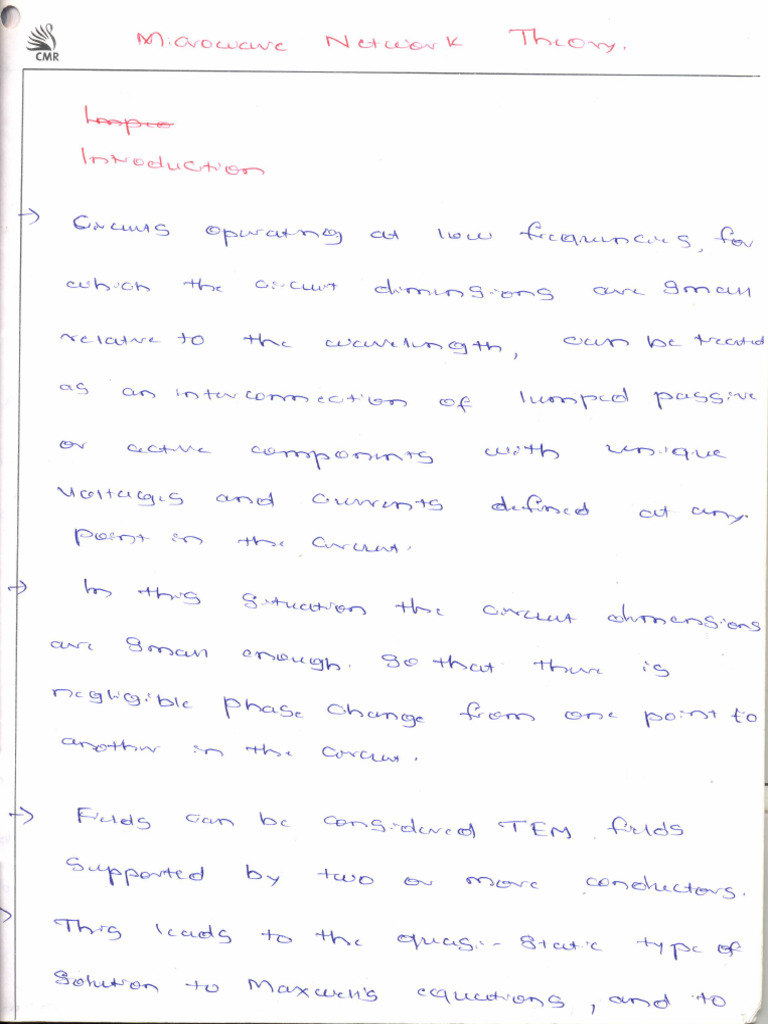 Microwave Network Theory.
CMR
Impe
Introduction
→ Circuits operating at low frequencies, for
which the circuit dimensions are small
relative to the wavelength, can be treated
as an interconnection of lumped passive
or active components with unique
voltages and currents defined at any
point in the circuit.
→ In this situation the circuit dimensions
are small enough. so that there is
negligible phase change from one point to
another in the circuit.
→ Fields can be considered TEM fields
supported by two or more conductors.
→ This leads to the quasi-static type of
solution to Maxwell's equations, and to